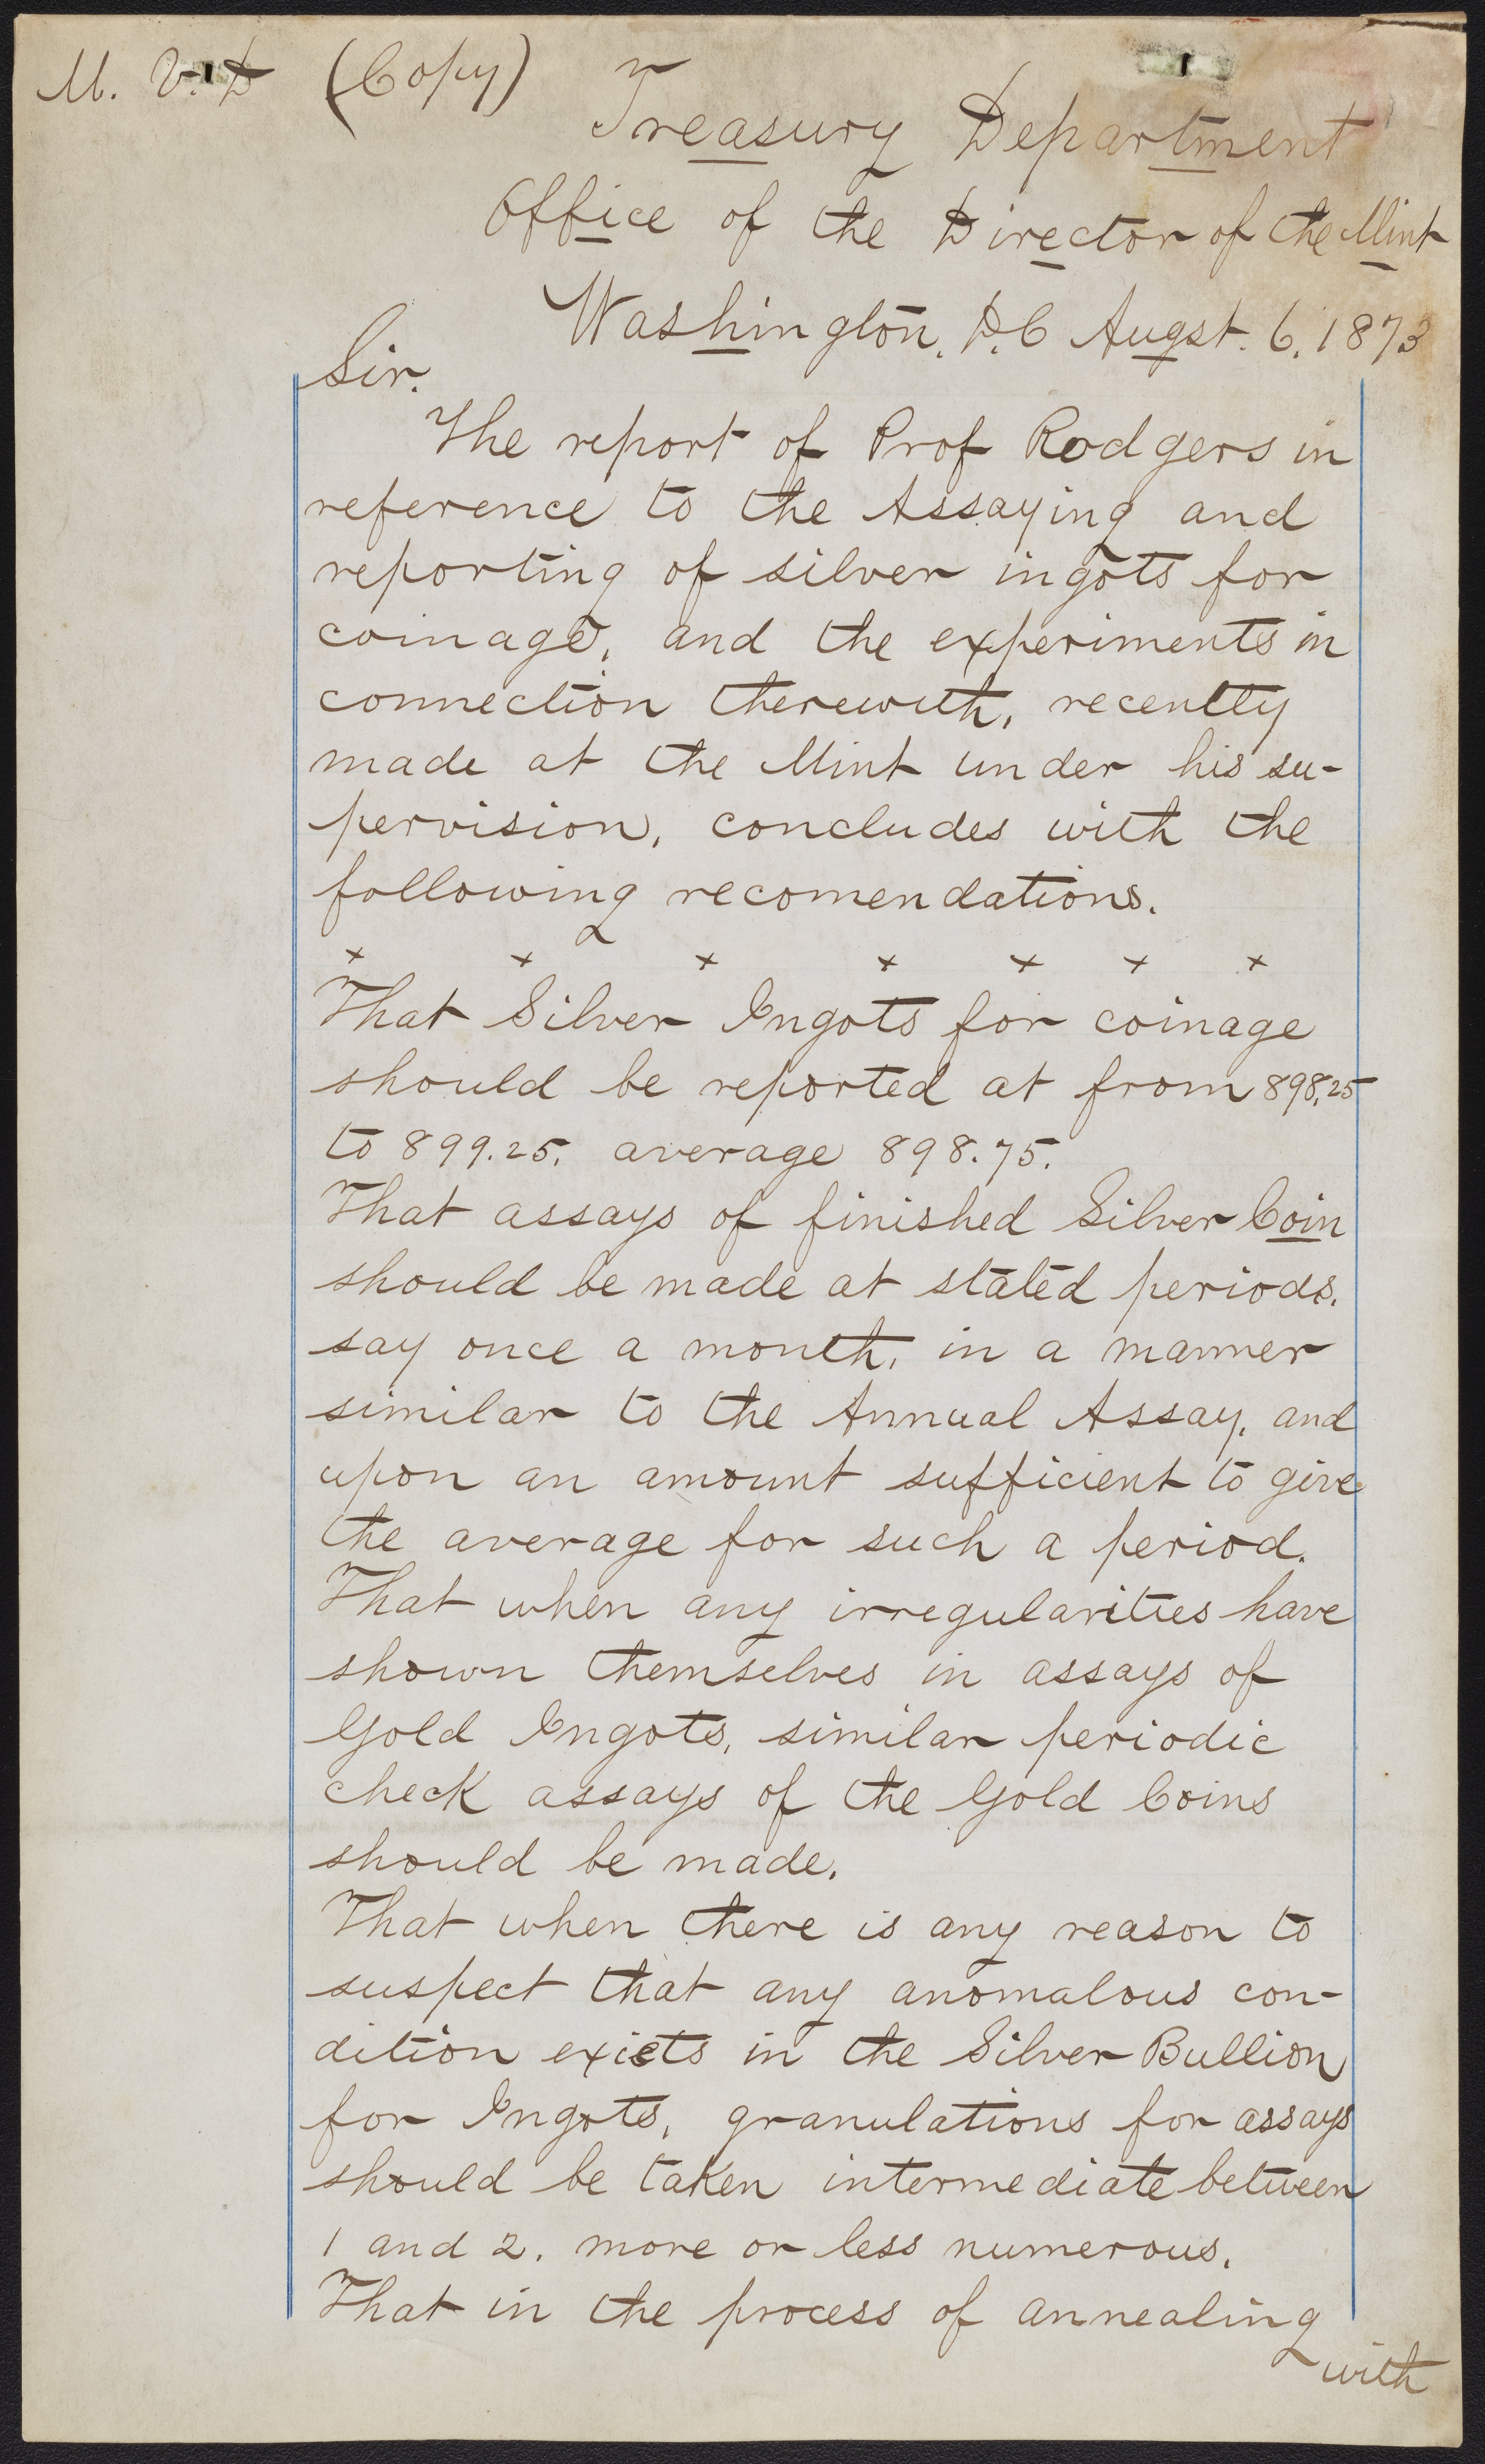 M. V. D (Copy)
Treasury Department
Office of the Director of the Mint
Washington, D.C Augst. 6. 1873
Sir.
The report of Prof Rodgers in
reference to the Assaying and
reporting of silver ingots for
coinage, and the experiments in
connection therewith, recently
made at the Mint under his su-
pervision, concludes with the
following recomendations.
x x x x x x x
That Silver Ingots for coinage
should be reported at from 898,25
to 899.25. average 898.75.
That assays of finished Silver Coin
should be made at stated periods.
say once a month, in a manner
similar to the Annual Assay, and
upon an amount sufficient to give
the average for such a period.
That when any irregularities have
shown themselves in assays of
Gold Ingots, similar periodic
check assays of the Gold Coins
should be made.
That when there is any reason to
suspect that any anomalous con-
dition exists in the Silver Bullion
for Ingots, granulations for assays
should be taken intermediate between
1 and 2. more or less numerous.
That in the process of annealing
with